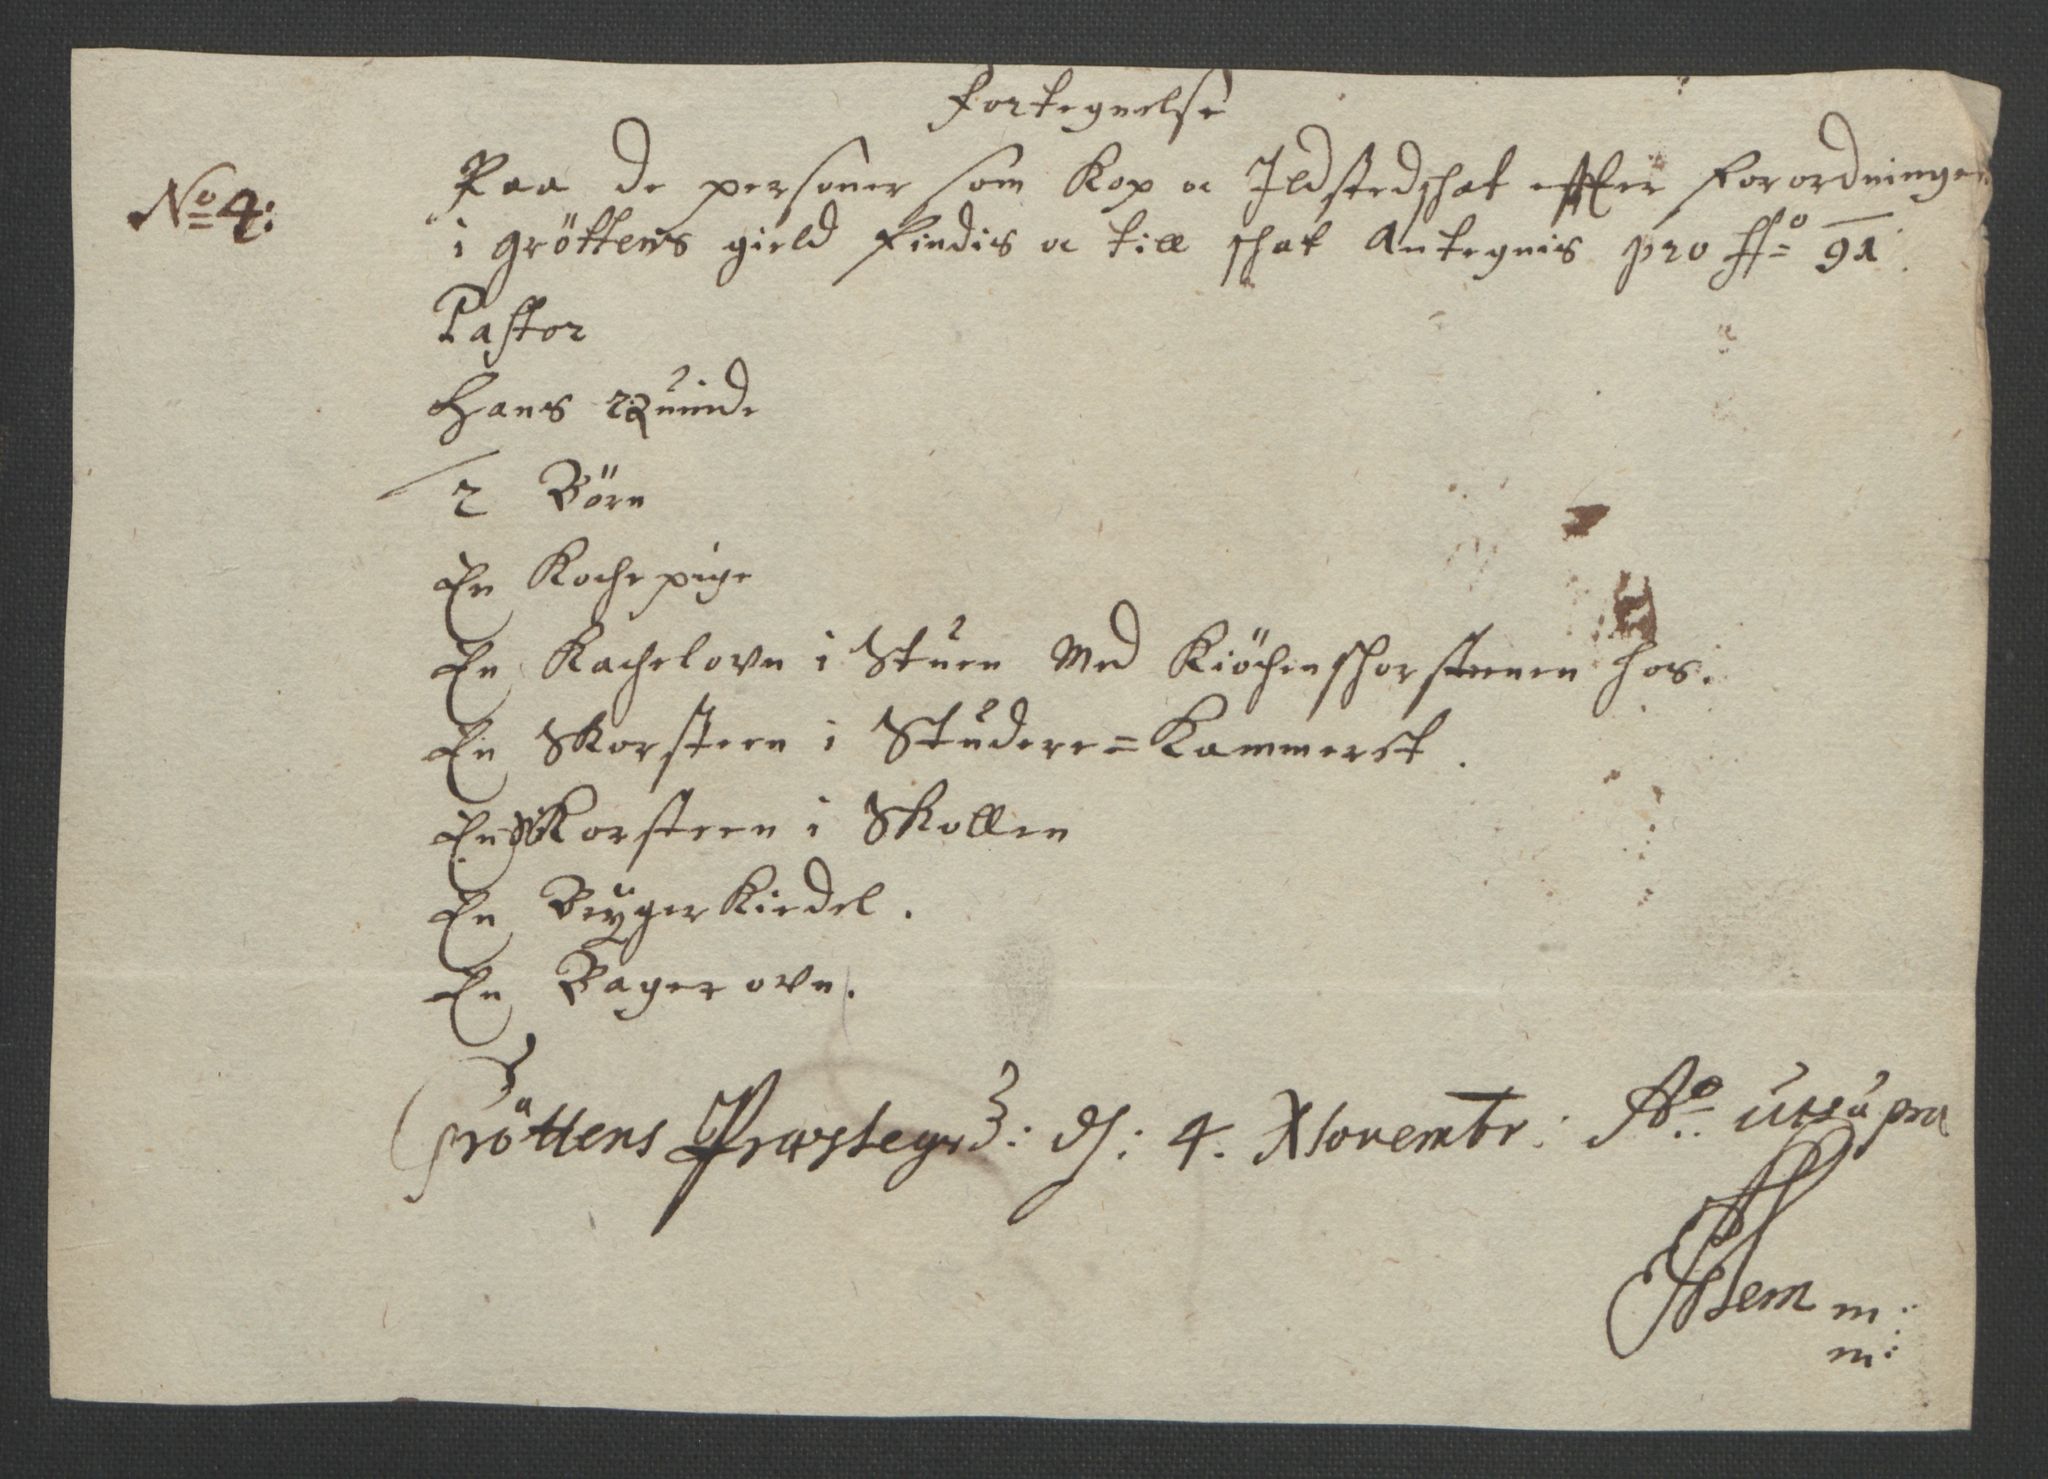 Fortegnelse
No 4:
Paa de personer som Kop oc Ildstedschat effter Forordningen
i Gröttens gield findis oc till schat Antegnis pro Ao 91.
Pastor
Hans Quinde
2 Börn
En Kochepige
En Kachelovn i Stuen Med Kiöchenschorsteenen hos.
En Skorsteen i Studere=Kammerst.
En Skorsteen i Skollen
En Brygerkiedel.
En Bagerovn.
Gröttens Præstegrd: d: 4. Novembr: Ao utsupra
m:
m: